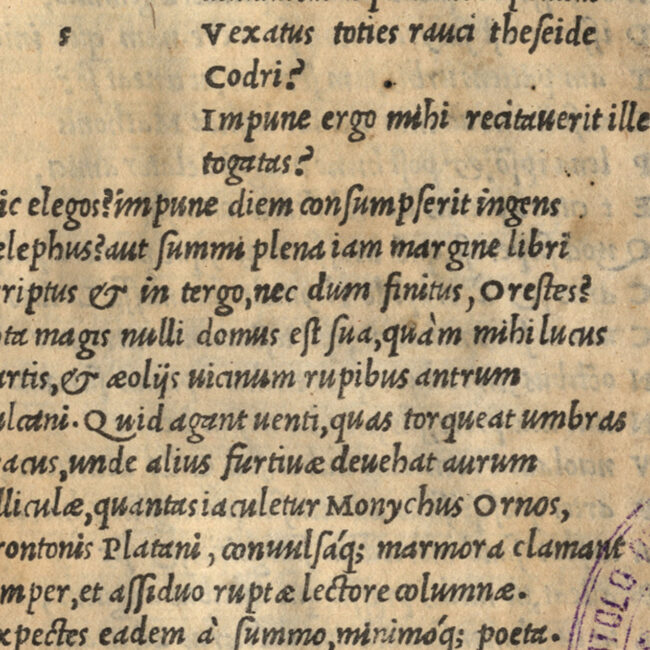 s Vexatus toties rauci theseide
Codri?
Impune ergo mihi recitauerit ille
togatas?
ic elegos?impune diem consumpserit ingens
elephus?aut summi plena iam margine libri
riptus & in tergo,nec dum finitus, Orestes?
ota magis nulli domus est sua,quàm mihi lucus
artis,& æolijs uicinum rupibus antrum
ulcani. Quid agant uenti,quas torqueat umbras
acus,unde alius furtiuæ deuehat aurum
lliculæ,quantas iaculetur Monychus Ornos,
rontonis Platani, conuulsáq; marmora clamant
mper,et assiduo ruptæ lectore columnæ.
xpectes eadem à summo,minimóq; poeta.